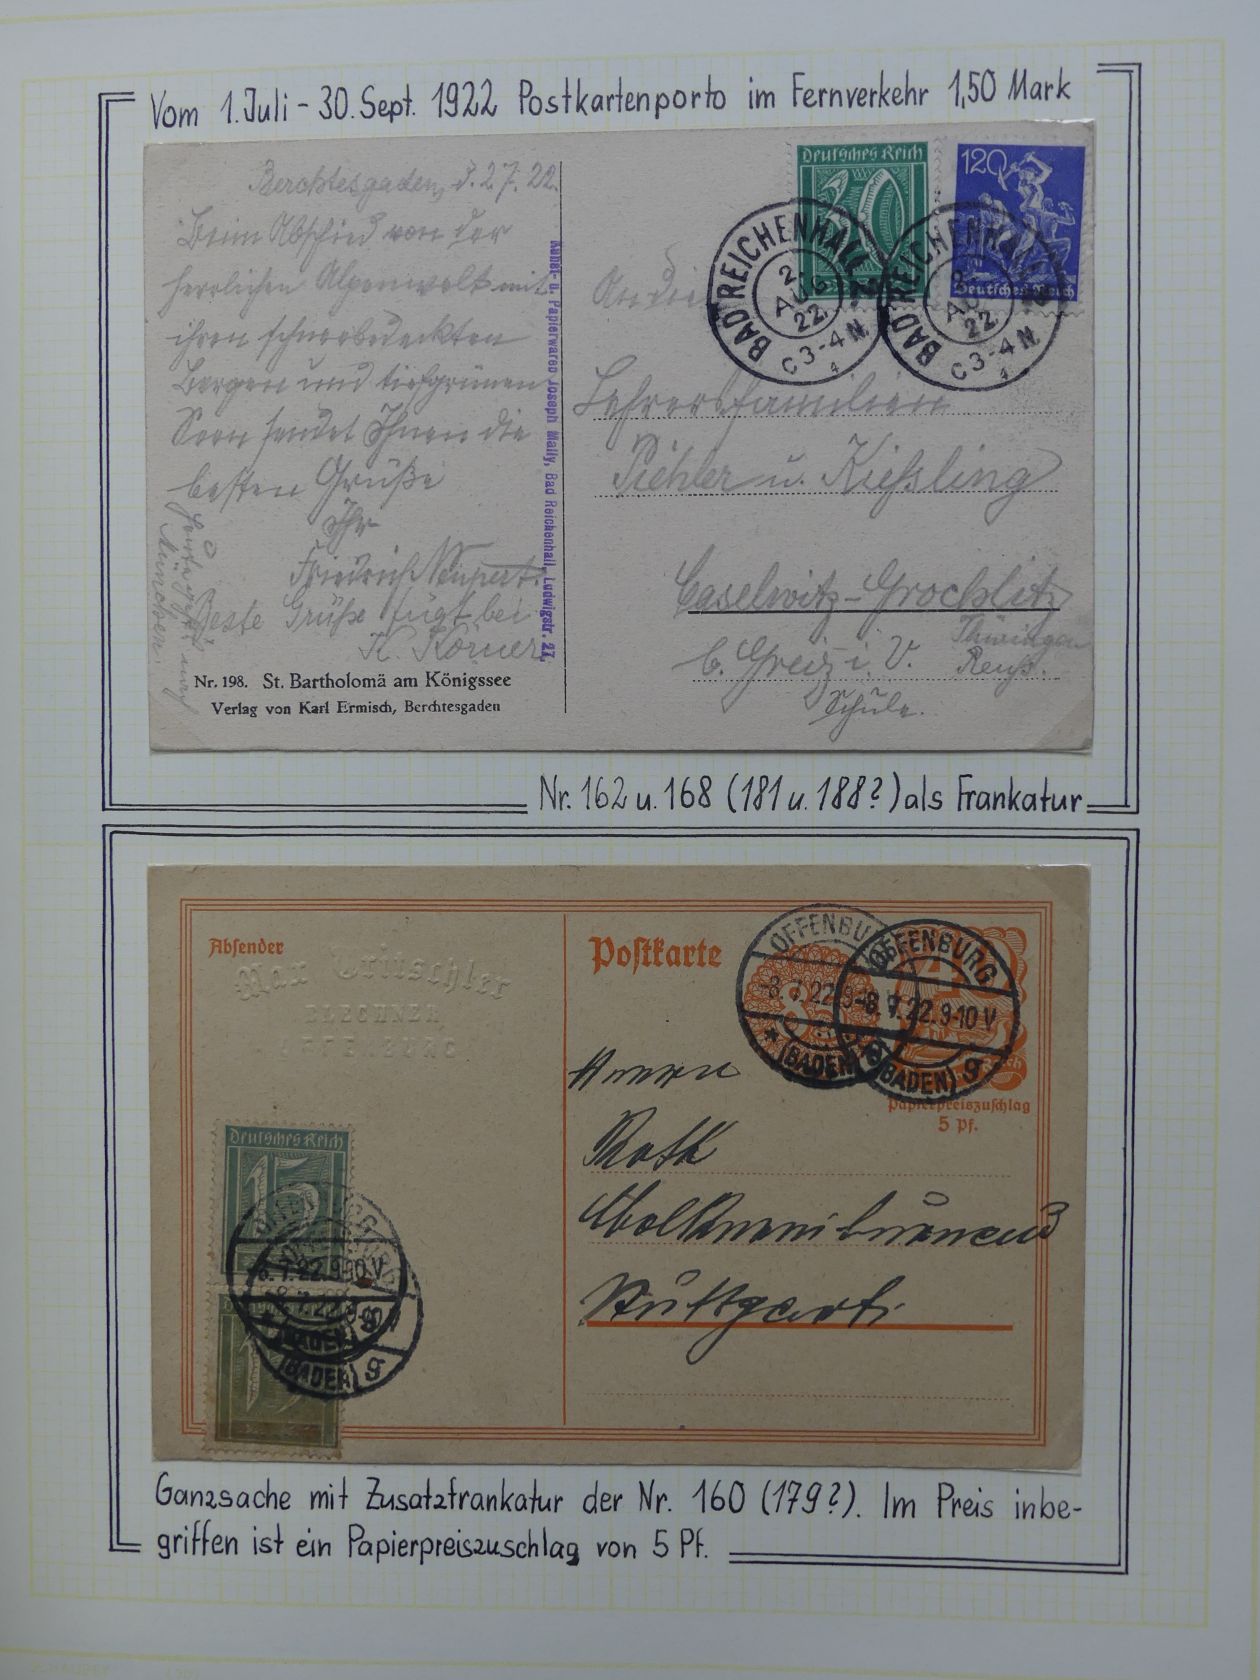 Vom 1. Juli - 30. Sept. 1922 Postkartenporto im Fernverkehr 1,50 Mark
Berchtesgaden, d. 2.7.22.
Beim Abschied von der
herrlichen Alpenwelt mit
ihren schneebedeckten
Bergen und tiefgrünen
Seen sendet Ihnen die
besten Grüße
Ihr
Friedrich
Beste Grüße fügt bei
K. Körner
München.
Nr. 198. St. Bartholomä am Königssee
Verlag von Karl Ermisch, Berchtesgaden
Kunst- u. Papierwaren Joseph Mally, Bad Reichenhall, Ludwigstr. 27.
Deutsches Reich
30
120
Deutsches Reich
BAD REICHENHALL 2
2 AUG 22
C 3-4 N
BAD REICHENHALL
22
C 3-4 N
An die
Lehrersfamilien
Pichler u. Kießling
Caselwitz-Grochlitz
b. Greiz i. V.
Thüringen
Reuß.
Schule.
Nr. 162 u. 168 (181 u. 188?) als Frankatur
Absender
Max Tritschler
BLECHNER
OFFENBURG
Postkarte
OFFENBURG
-8.7.22.9-
(BADEN)
OFFENBURG
-8.7.22.9-10 V
(BADEN) g
Reich
Papierpreiszuschlag
5 Pf.
Herrn
Stuttgart
Deutsches Reich
15
8.7.22.9-10 V
-8.7.22.9
(BADEN) g
(BADEN) g
Ganzsache mit Zusatzfrankatur der Nr. 160 (179?). Im Preis inbe-
griffen ist ein Papierpreiszuschlag von 5 Pf.